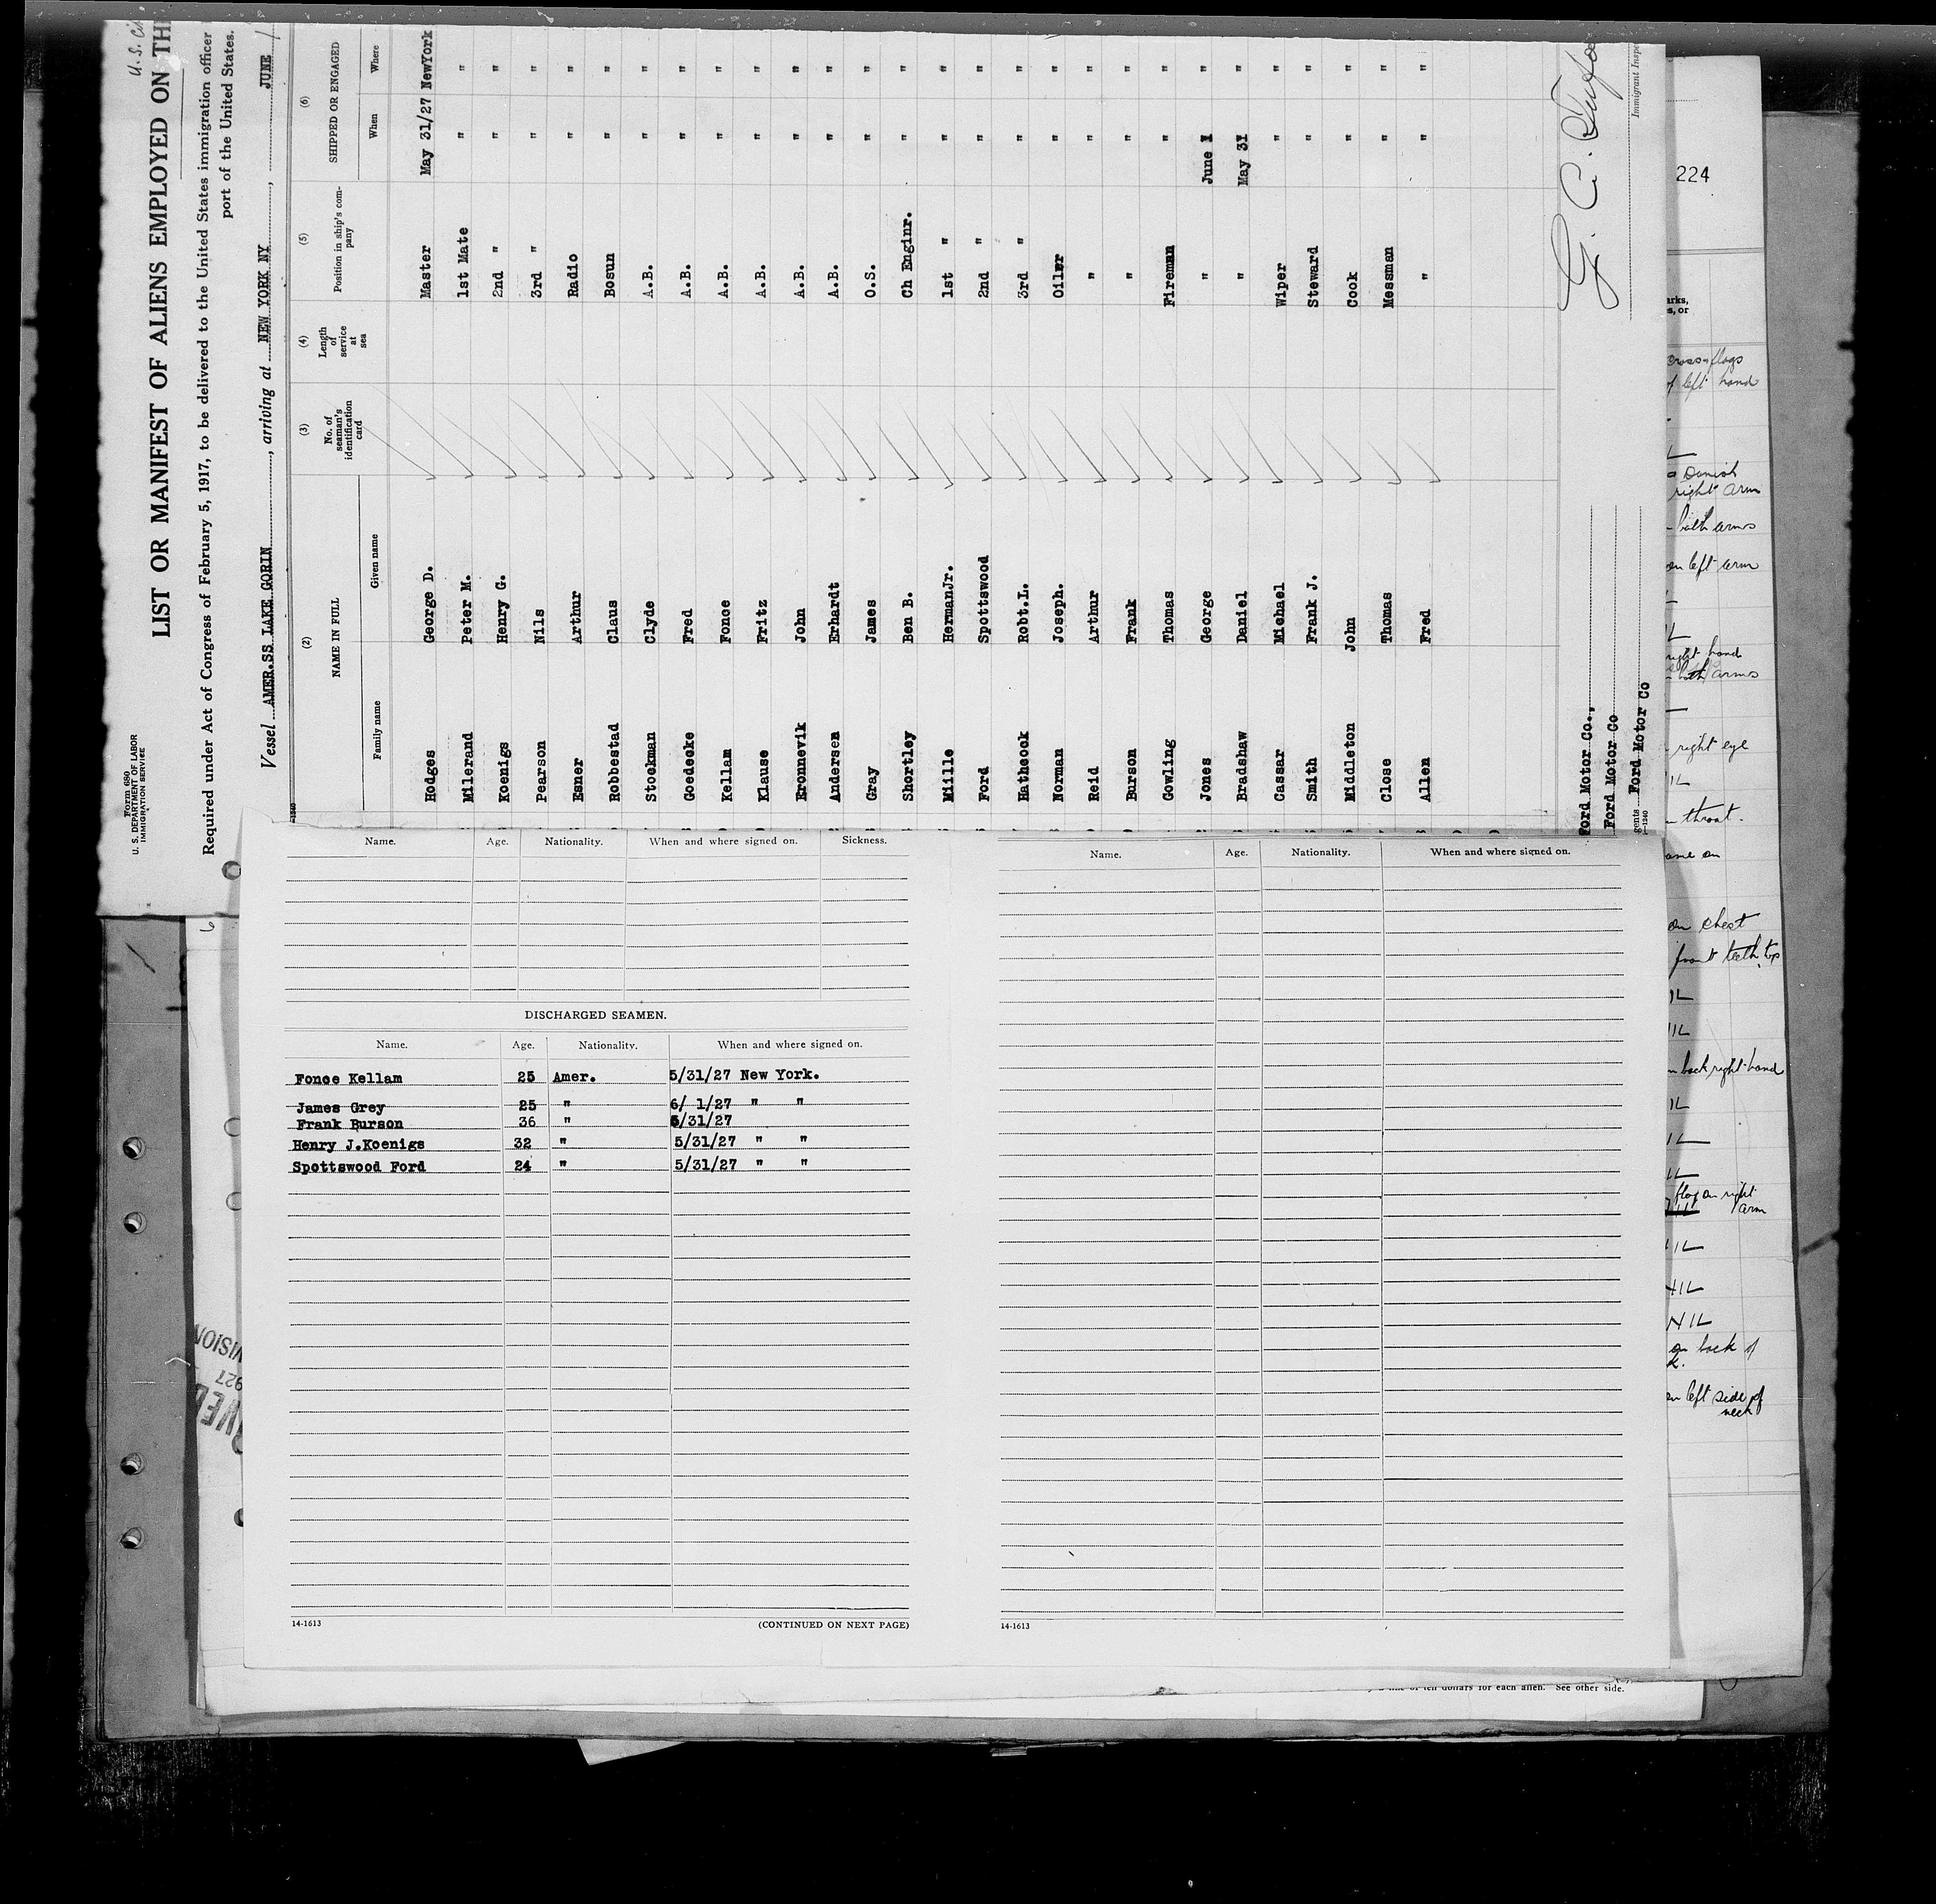 U. S.
Form 680
U. S. DEPARTMENT OF LABOR
IMMIGRATION SERVICE
LIST OR MANIFEST OF ALIENS EMPLOYED ON
Required under Act of Congress of February 5, 1917, to be delivered to the United States immigration officer
port of the United States.
Vessel AMER.SS LAKE GORIN, arriving at NEW YORK NY, JUNE
(2) (3) (4) (5) (6)
NAME IN FULL No. of seaman's identification card Length of service at sea Position in ship's company SHIPPED OR ENGAGED
Family name Given name When Where
Hodges George D. Master May 31/27 NewYork
Milerand Peter M. 1st Mate " "
Koenigs Henry G. 2nd " " "
Pearson Nils 3rd " " "
Esner Arthur Radio " "
Robbestad Claus Bosun " "
Stockman Clyde A.B. " "
Goedecke Fred A.B. " "
Kellam Fonce A.B. " "
Klause Fritz A.B. " "
Kronnevik John A.B. " "
Andersen Erhardt A.B. " "
Gray James O.S. " "
Shortley Ben B. Ch Enginr. " "
Miille HermanJr. 1st " " "
Ford Spottswood 2nd " " "
Hathcock Robt.L. 3rd " " "
Norman Joseph. Oiler " "
Reid Arthur " " "
Burson Frank " " "
Gowling Thomas Fireman " "
Jones George " June 1 "
Bradshaw Daniel " May 31 "
Cassar Michael Wiper " "
Smith Frank J. Steward " "
Middleton John Cook " "
Close Thomas Messman " "
Allen Fred " " "
Ford Motor Co.,
Ford Motor Co
gents Ford Motor Co
G. C.
Immigrant
Name. Age. Nationality. When and where signed on. Sickness.
DISCHARGED SEAMEN.
Name. Age. Nationality. When and where signed on.
Fonce Kellam 25 Amer. 5/31/27 New York.
James Grey 25 " 6/ 1/27 " "
Frank Burson 36 " 5/31/27
Henry J.Koenigs 32 " 5/31/27 " "
Spottswood Ford 24 " 5/31/27 " "
14-1613
(CONTINUED ON NEXT PAGE)
Name. Age. Nationality. When and where signed on.
14-1613
224
flags
of left hand
Danish
right arm
both arms
on left arm
right hand
both arms
right eye
throat.
on
on chest
front teeth top
back right hand
flag on right
arm
NIL
NIL
on back of
on left side of
neck
927
of ten dollars for each alien. See other side.